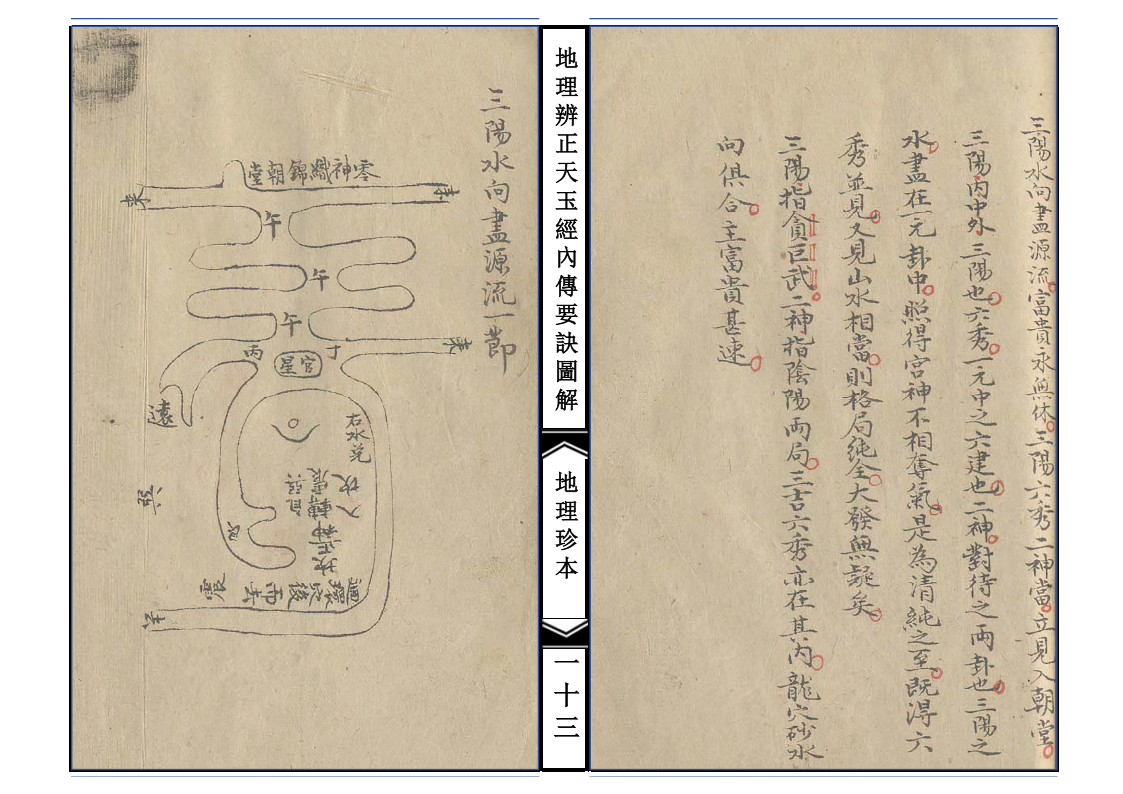 三陽水向盡源流富貴永無休三陽六秀二神當立見入朝堂
三陽內中外三陽也六秀一元中之六建也二神對待之兩卦也三陽之
水盡在一元卦中照得宮神不相奪氣是為清純之至既得六
秀並見又見山水相當則格局純全大發無疑矣
三陽指貪巨武二神指陰陽兩局三吉六秀亦在其內龍穴砂水
向俱合主富貴甚速
地理辨正天玉經內傳要訣圖解
地理珍本
一十三
三陽水向盡源流一節
零神織錦朝堂
來
午
午
午
丙
丁
來
官星
遠
右水兌
入坎
轉震
坎正神
巽
艮
震
迴環穴後而去